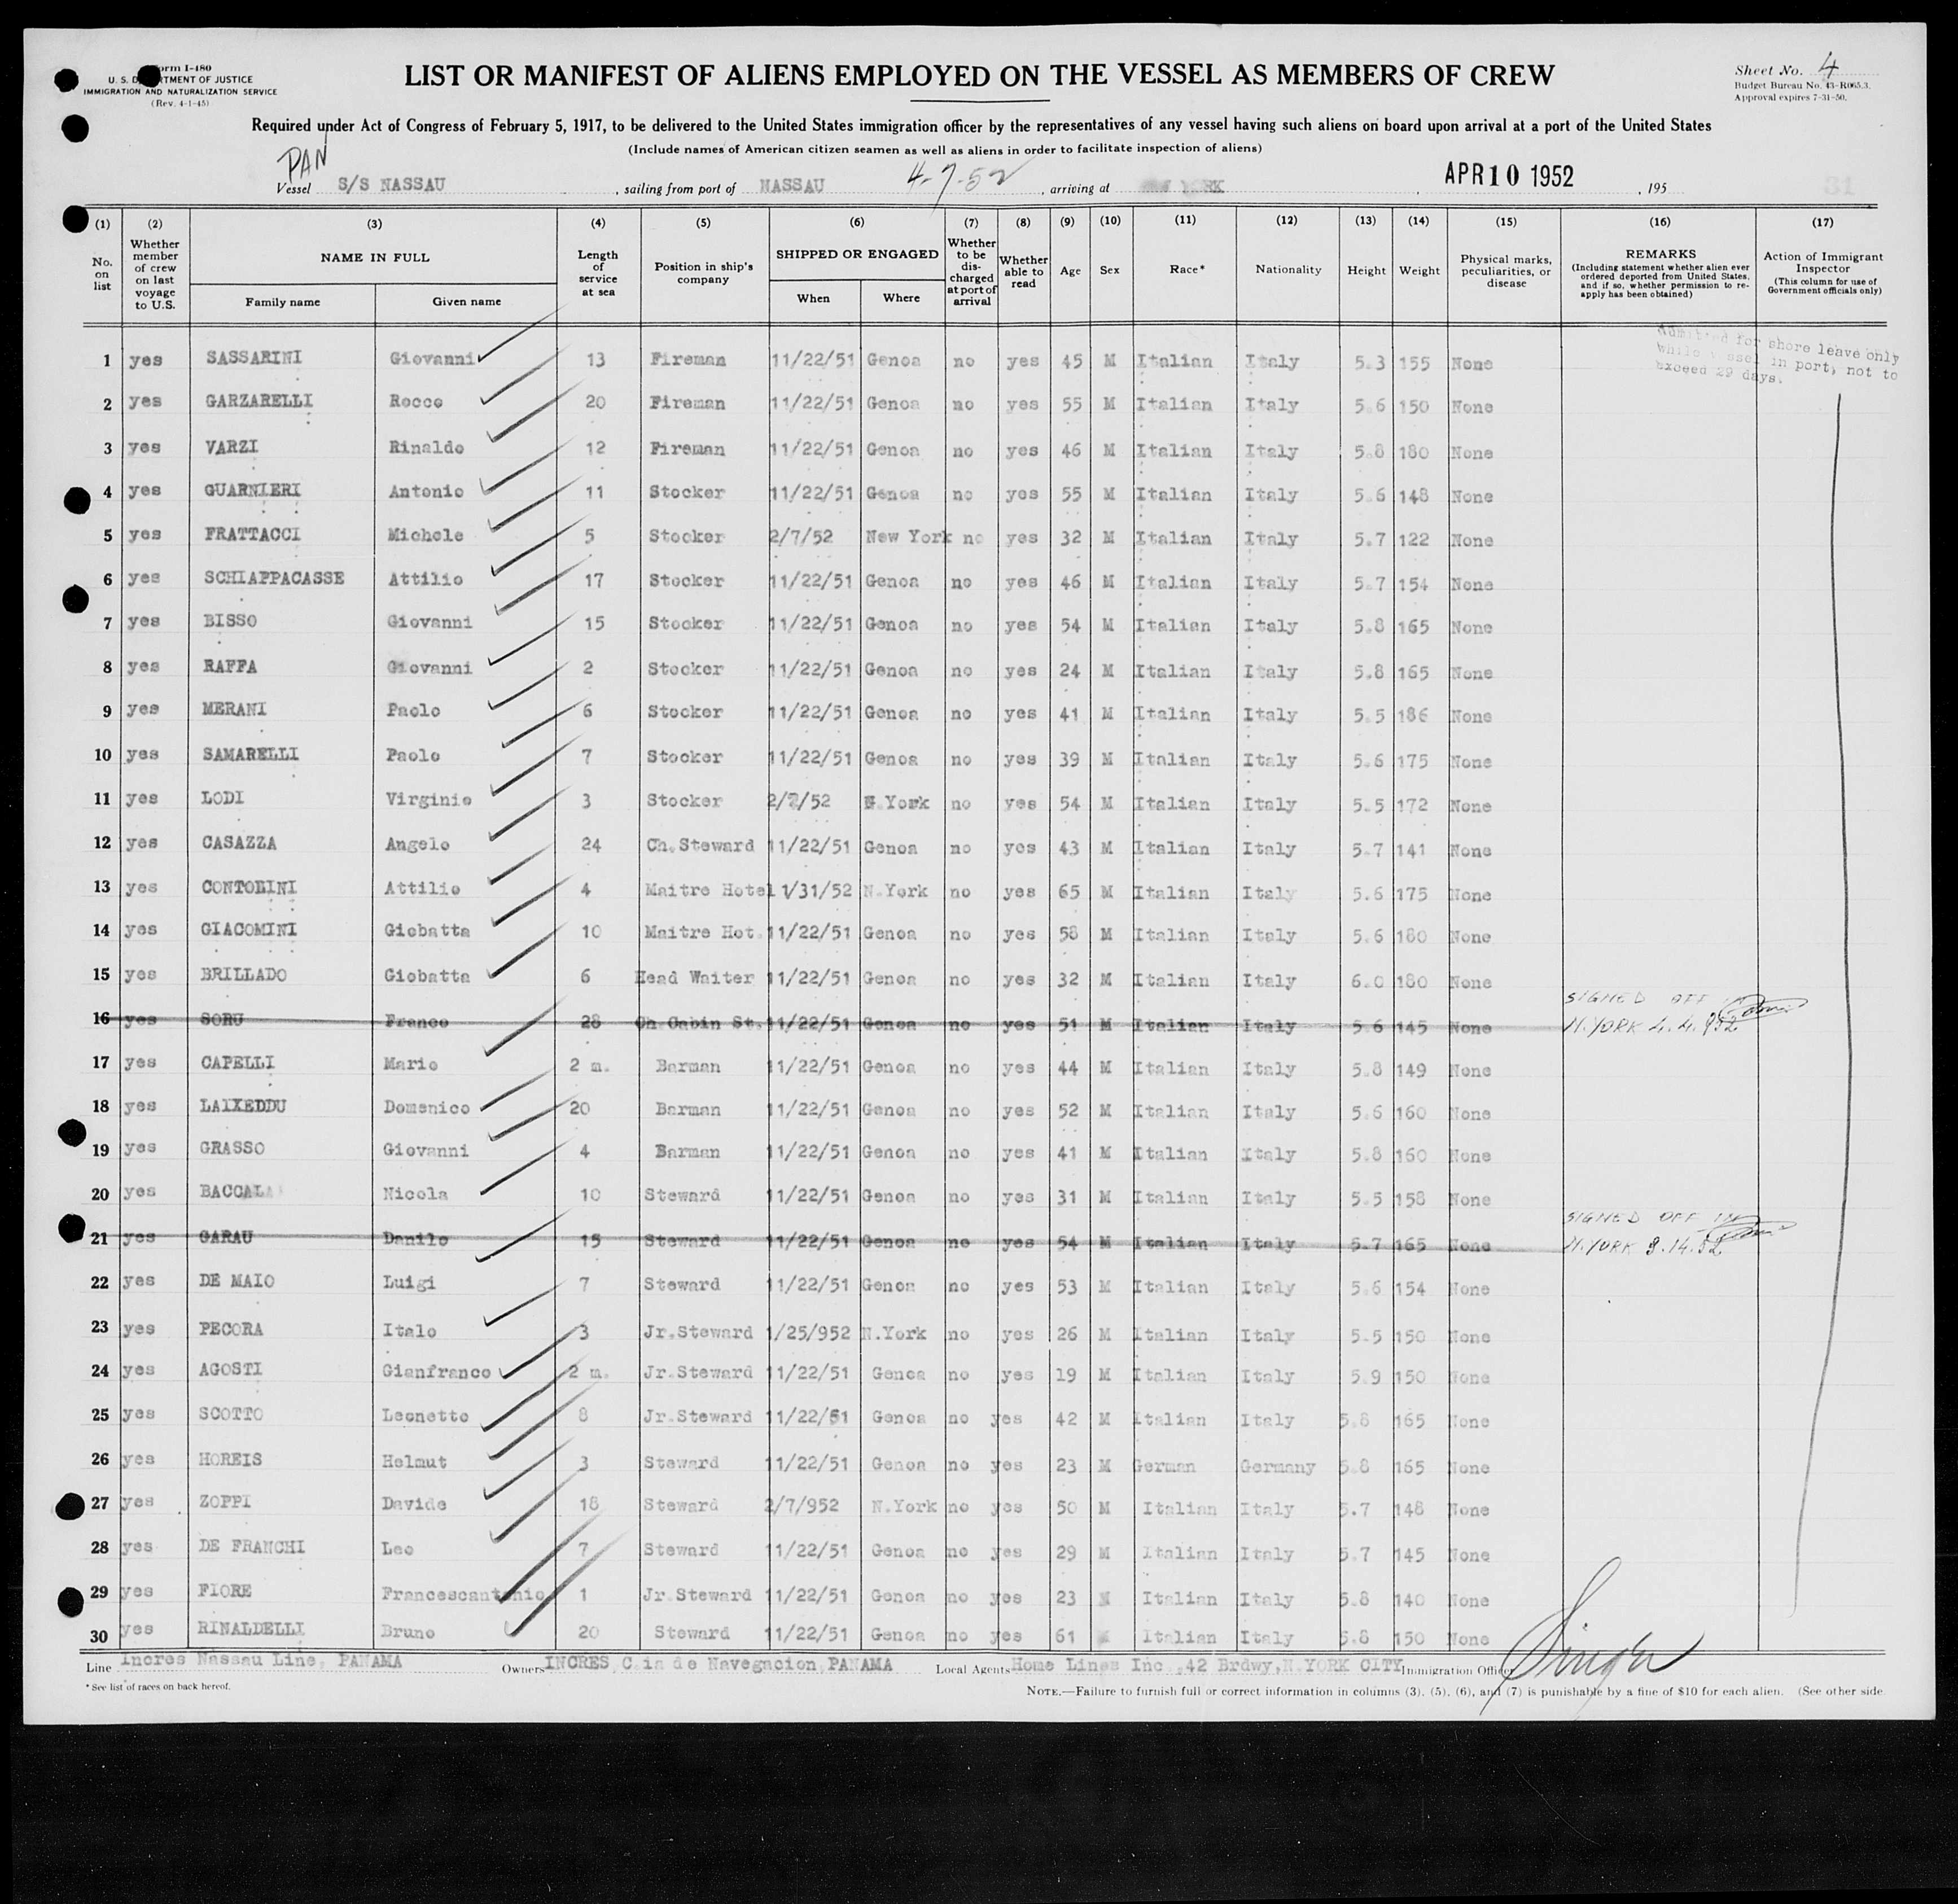 Form I-480
U. S. DEPARTMENT OF JUSTICE
IMMIGRATION AND NATURALIZATION SERVICE
(Rev. 4-1-45)
LIST OR MANIFEST OF ALIENS EMPLOYED ON THE VESSEL AS MEMBERS OF CREW
Sheet No. 4
Budget Bureau No. 43-R065.3.
Approval expires 7-31-50.
Required under Act of Congress of February 5, 1917, to be delivered to the United States immigration officer by the representatives of any vessel having such aliens on board upon arrival at a port of the United States
(Include names of American citizen seamen as well as aliens in order to facilitate inspection of aliens)
PAN
Vessel S/S NASSAU, sailing from port of NASSAU 4-7-52, arriving at YORK, APR 10 1952, 195
31
(1) (2) (3) (4) (5) (6) (7) (8) (9) (10) (11) (12) (13) (14) (15) (16) (17)
No. on list
Whether member of crew on last voyage to U.S.
NAME IN FULL
Family name
Given name
Length of service at sea
Position in ship's company
SHIPPED OR ENGAGED
When
Where
Whether to be discharged at port of arrival
Whether able to read
Age
Sex
Race*
Nationality
Height
Weight
Physical marks, peculiarities, or disease
REMARKS
(Including statement whether alien ever ordered deported from United States, and if so, whether permission to reapply has been obtained)
Action of Immigrant Inspector
(This column for use of Government officials only)
Admitted for shore leave only
while vessel in port, not to
exceed 29 days.
1 yes SASSARINI Giovanni 13 Fireman 11/22/51 Genoa no yes 45 M Italian Italy 5.3 155 None
2 yes GARZARELLI Rocco 20 Fireman 11/22/51 Genoa no yes 55 M Italian Italy 5.6 150 None
3 yes VARZI Rinaldo 12 Fireman 11/22/51 Genoa no yes 46 M Italian Italy 5.8 180 None
4 yes GUARNIERI Antonio 11 Stocker 11/22/51 Genoa no yes 55 M Italian Italy 5.6 148 None
5 yes FRATTACCI Michele 5 Stocker 2/7/52 New York no yes 32 M Italian Italy 5.7 122 None
6 yes SCHIAPPACASSE Attilio 17 Stocker 11/22/51 Genoa no yes 46 M Italian Italy 5.7 154 None
7 yes BISSO Giovanni 15 Stocker 11/22/51 Genoa no yes 54 M Italian Italy 5.8 165 None
8 yes RAFFA Giovanni 2 Stocker 11/22/51 Genoa no yes 24 M Italian Italy 5.8 165 None
9 yes MERANI Paolo 6 Stocker 11/22/51 Genoa no yes 41 M Italian Italy 5.5 186 None
10 yes SAMARELLI Paolo 7 Stocker 11/22/51 Genoa no yes 39 M Italian Italy 5.6 175 None
11 yes LODI Virginio 3 Stocker 2/7/52 N.York no yes 54 M Italian Italy 5.5 172 None
12 yes CASAZZA Angelo 24 Ch.Steward 11/22/51 Genoa no yes 43 M Italian Italy 5.7 141 None
13 yes CONTOBINI Attilio 4 Maitre Hotel 1/31/52 N.York no yes 65 M Italian Italy 5.6 175 None
14 yes GIACOMINI Giobatta 10 Maitre Hot. 11/22/51 Genoa no yes 58 M Italian Italy 5.6 180 None
15 yes BRILLADO Giobatta 6 Head Waiter 11/22/51 Genoa no yes 32 M Italian Italy 6.0 180 None
16 yes SORU Franco 28 Ch Cabin St. 11/22/51 Genoa no yes 51 M Italian Italy 5.6 145 None SIGNED OFF IN
N.YORK 4.4.952
17 yes CAPELLI Mario 2 m. Barman 11/22/51 Genoa no yes 44 M Italian Italy 5.8 149 None
18 yes LAIXEDDU Domenico 20 Barman 11/22/51 Genoa no yes 52 M Italian Italy 5.6 160 None
19 yes GRASSO Giovanni 4 Barman 11/22/51 Genoa no yes 41 M Italian Italy 5.8 160 None
20 yes BACCALA Nicola 10 Steward 11/22/51 Genoa no yes 31 M Italian Italy 5.5 158 None
21 yes GARAU Danilo 15 Steward 11/22/51 Genoa no yes 54 M Italian Italy 5.7 165 None SIGNED OFF IN
N.YORK 3.14.52
22 yes DE MAIO Luigi 7 Steward 11/22/51 Genoa no yes 53 M Italian Italy 5.6 154 None
23 yes PECORA Italo 3 Jr.Steward 1/25/952 N.York no yes 26 M Italian Italy 5.5 150 None
24 yes AGOSTI Gianfranco 2 m. Jr.Steward 11/22/51 Genoa no yes 19 M Italian Italy 5.9 150 None
25 yes SCOTTO Leonetto 8 Jr.Steward 11/22/51 Genoa no yes 42 M Italian Italy 5.8 165 None
26 yes HOREIS Helmut 3 Steward 11/22/51 Genoa no yes 23 M German Germany 5.8 165 None
27 yes ZOPPI Davide 18 Steward 2/7/952 N.York no yes 50 M Italian Italy 5.7 148 None
28 yes DE FRANCHI Leo 7 Steward 11/22/51 Genoa no yes 29 M Italian Italy 5.7 145 None
29 yes FIORE Francescantonio 1 Jr Steward 11/22/51 Genoa no yes 23 M Italian Italy 5.8 140 None
30 yes RINALDELLI Bruno 20 Steward 11/22/51 Genoa no yes 61 M Italian Italy 5.8 150 None
Line Incres Nassau Line, PANAMA Owners INCRES C.ia de Navegacion, PANAMA Local Agents Home Lines Inc.,42 Brdwy,N.YORK CITY Immigration Officer Singer
* See list of races on back hereof.
NOTE.—Failure to furnish full or correct information in columns (3), (5), (6), and (7) is punishable by a fine of $10 for each alien. (See other side